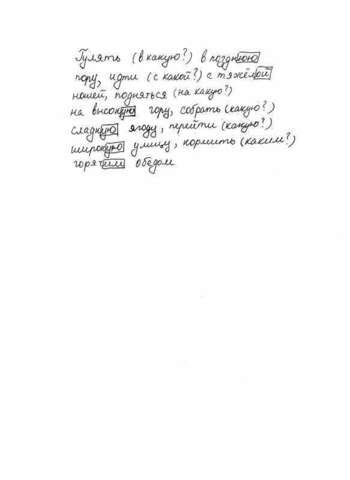 Гулять (в какую?) в позднюю
пору, идти (с какой?) с тяжёлой
ношей, подняться (на какую?)
на высокую гору, собрать (какую?)
сладкую ягоду, перейти (какую?)
широкую улицу, кормить (каким?)
горятим обедом